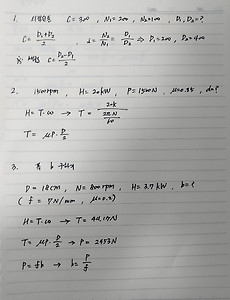 1. C=300, N₁=200, N₂=100, D₁, D₂=?
C= D₁+D₂/2, i= N₂/N₁ = D₁/D₂ ⇒ D₁=200, D₂=400
C= D₂-D₁/2
2. H=20kW, P=1500N, μ=0.35, d=?
H=T·ω → T= 20k/(2πN/60)
T= μP·D/2
3.
D=18cm, N=800rpm, H=3.7kW, b=?
(f=7N/mm, μ=0.2)
H=T·ω → T=44.17N
T=μP·D/2 → P=2453N
P=fb → b=P/f